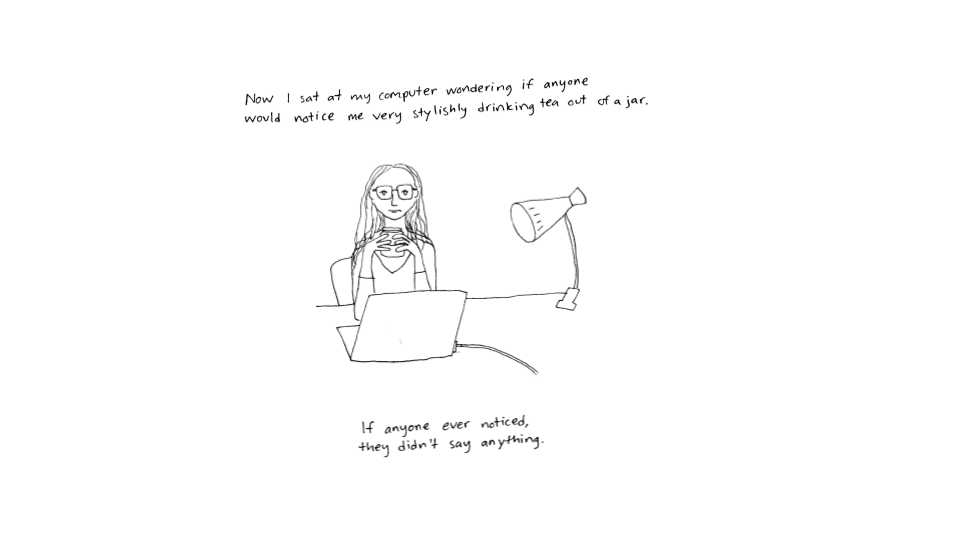 Now I sat at my computer wondering if anyone
would notice me very stylishly drinking tea out of a jar.
If anyone ever noticed,
they didn't say anything.